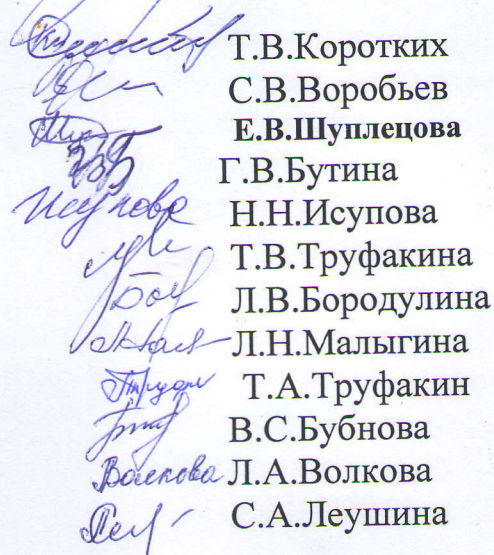 Т.В.Коротких
С.В.Воробьев
Е.В.Шуплецова
Г.В.Бутина
Исупова Н.Н.Исупова
Т.В.Труфакина
Л.В.Бородулина
Л.Н.Малыгина
Т.А.Труфакин
В.С.Бубнова
Волкова Л.А.Волкова
С.А.Леушина